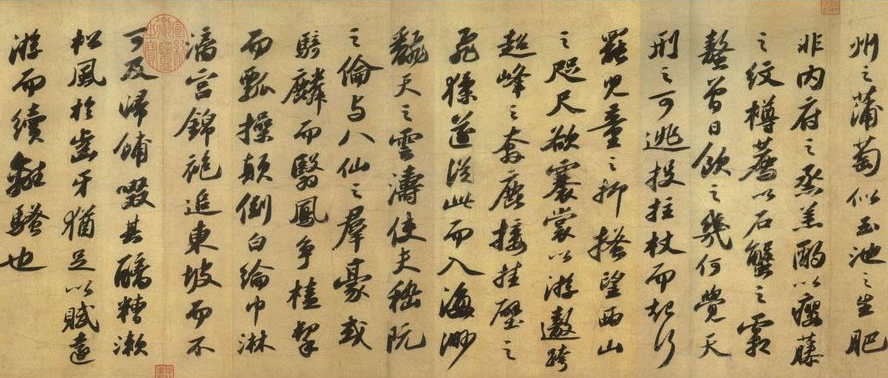 州之蒲萄似玉池之生肥
非內府之烝羔酌以癭藤
之紋樽薦以石蟹之霜
螯曾日飲之幾何覺天
刑之可逃投拄杖而起行
罷兒童之抑搔望西山
之咫尺欲褰裳以游遨跨
超峰之奔鹿接挂壁之
飛猱遂從此而入海渺
翻天之雲濤使夫嵇阮
之倫與八仙之羣豪或
騎麟而翳鳳爭榼挈
而瓢操顛倒白綸巾淋
漓宮錦袍追東坡而不
可及歸餔歠其醨糟漱
松風於齒牙猶足以賦遠
游而續離騷也